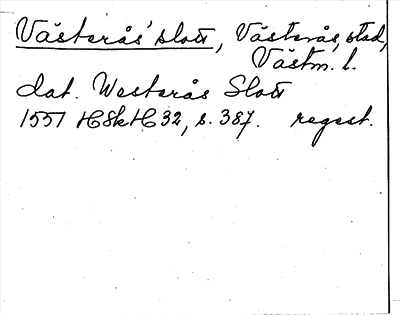 Västerås slott, Västerås, stad,
Västm. l.
dat. Westerås Slott
1551 HSH 32, s. 387. regest.